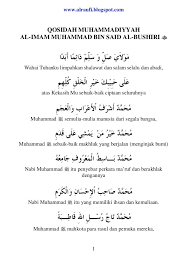 www.alranfi.blogspot.com
QOSIDAH MUHAMMADIYYAH
AL-IMAM MUHAMMAD BIN SAID AL-BUSHIRI ﷺ
مَوْلَايَ صَلِّ وَ سَلِّمْ دَائِمًا أَبَدًا
Wahai Tuhanku limpahkan shalawat dan salam selalu dan abadi,
عَلَى حَبِيْبِكَ خَيْرِ الْخَلْقِ كُلِّهِمِ
atas Kekasih Mu sebaik-baik ciptaan seluruhnya
مُحَمَّدٌ أَشْرَفُ الْأَعْرَابِ وَالْعَجَمِ
Nabi Muhammad ﷺ semulia-mulia manusia dari segala bangsa,
مُحَمَّدٌ خَيْرُ مَنْ يَمْشِيْ عَلَى قَدَمِ
Muhammad ﷺ sebaik-baik makhluk yang berjalan (menginjak bumi)
مُحَمَّدٌ بَاسِطُ الْمَعْرُوْفِ جَامِعَةً
Nabi Muhammad ﷺ itu penyebar perkara ma'ruf dan berakhlak
dengannya
مُحَمَّدٌ صَاحِبُ الْإِحْسَانِ وَالْكَرَمِ
Nabi Muhammad ﷺ itu yang memiliki ihsan dan kemuliaan.
مُحَمَّدٌ تَاجُ رُسْلِ اللهِ قَاطِبَةً
Muhammad ﷺ mahkota para rasul dan pemuka mereka,
1